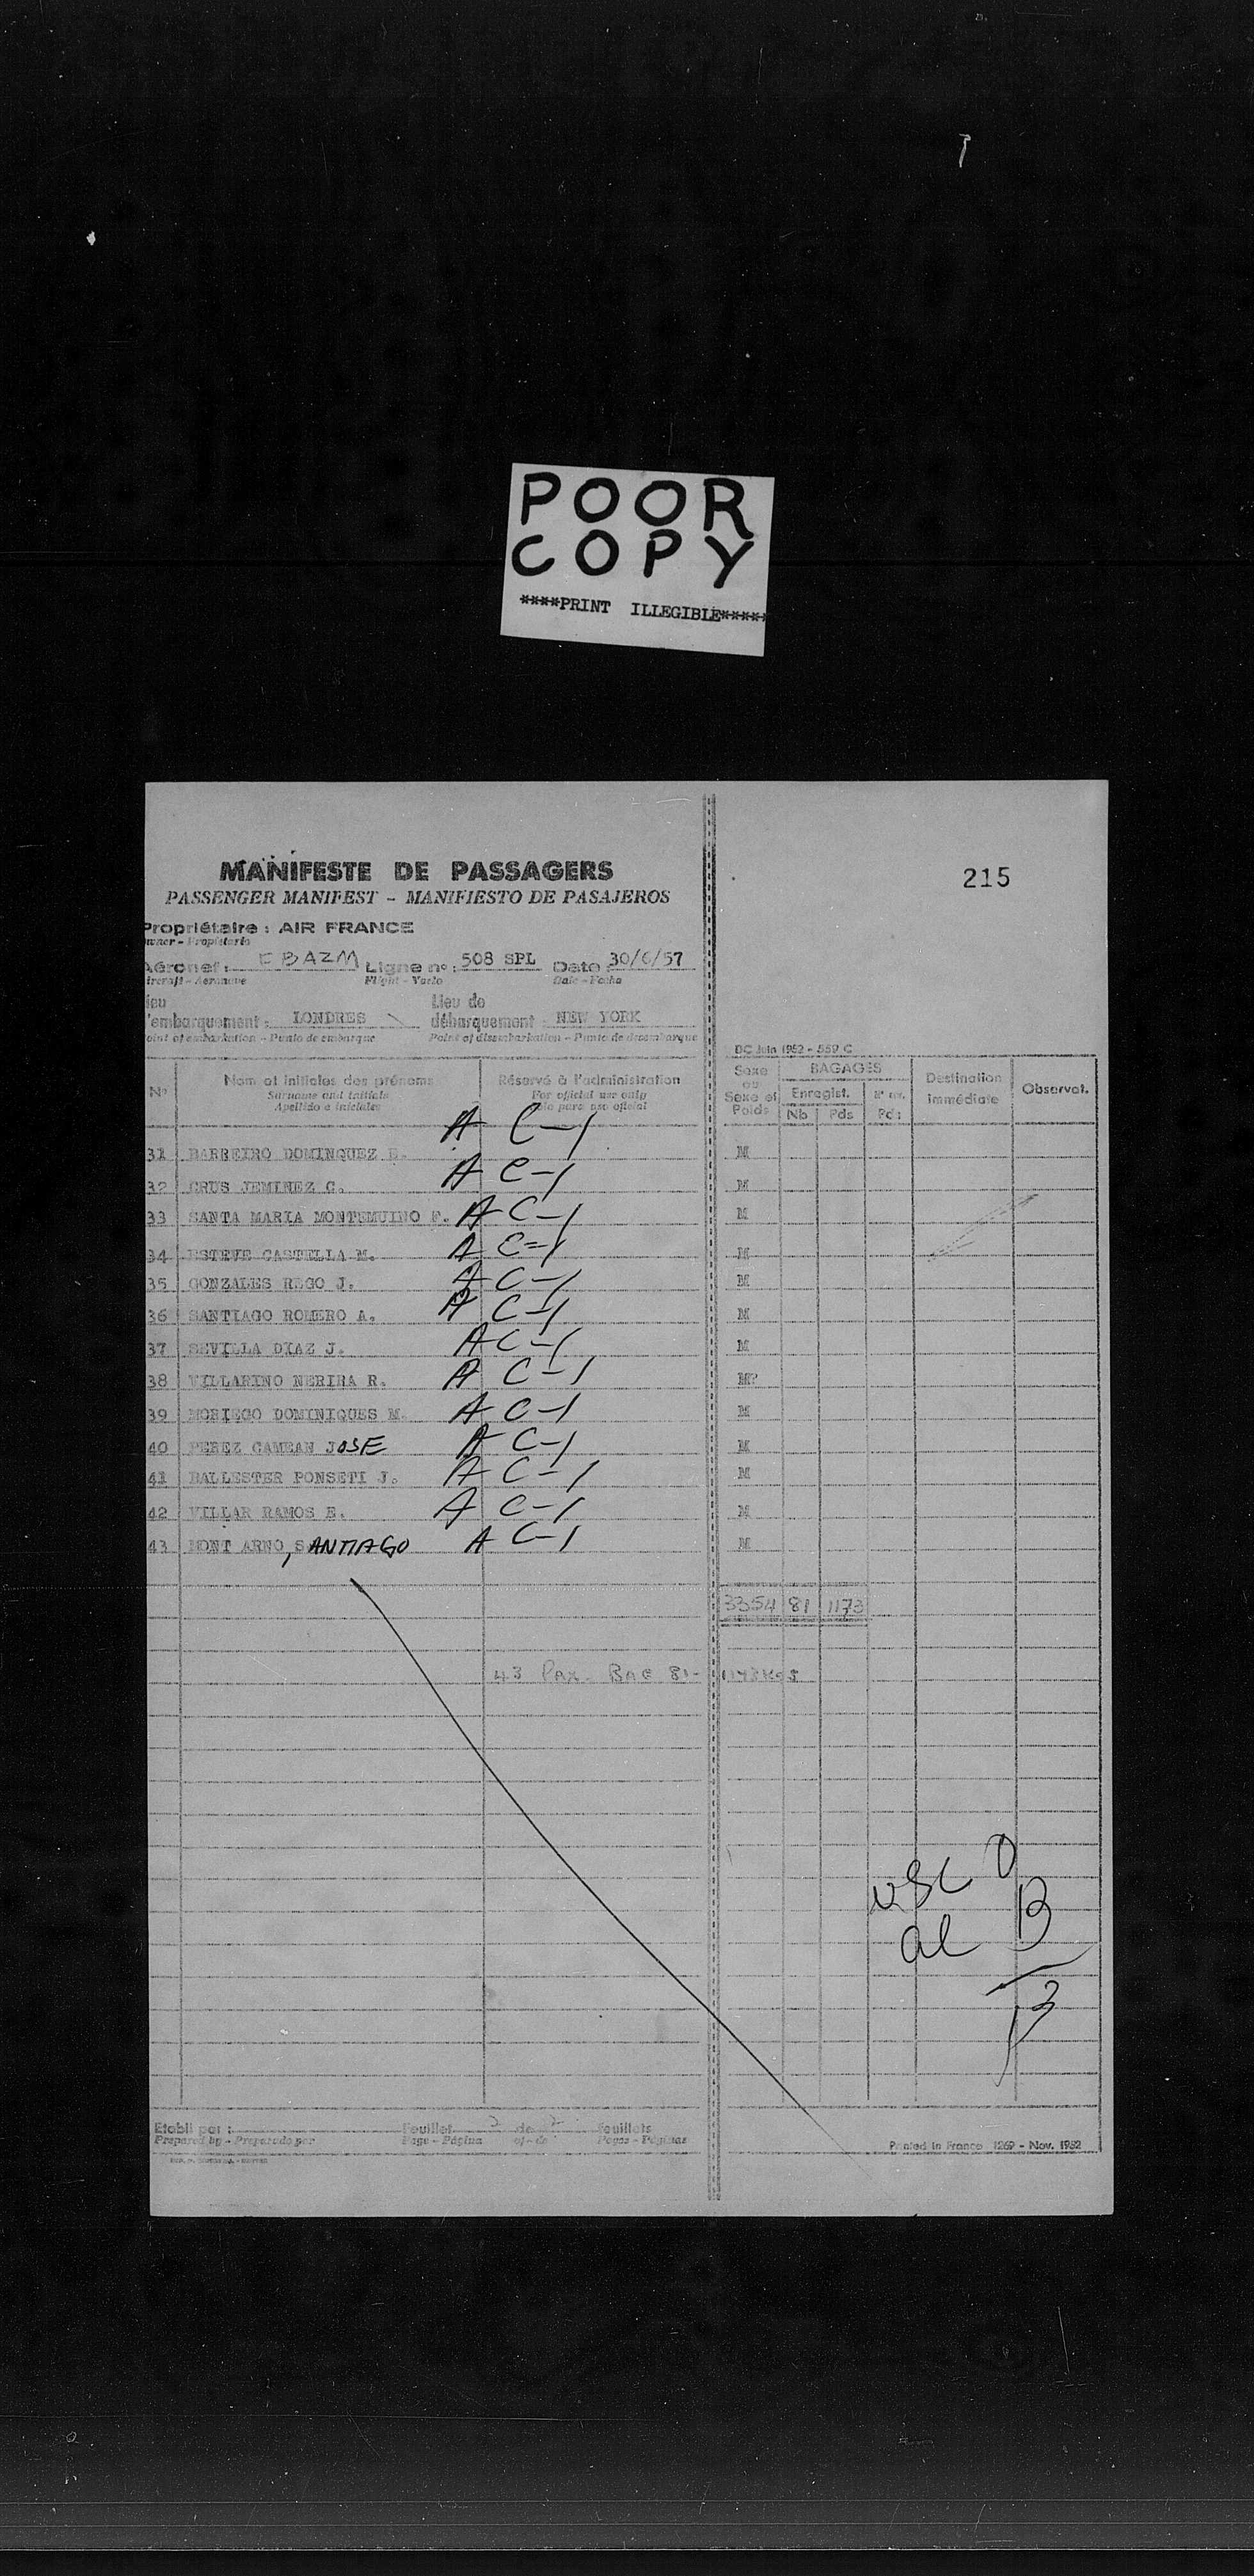 POOR
COPY
****PRINT ILLEGIBLE*****
215
MANIFESTE DE PASSAGERS
PASSENGER MANIFEST - MANIFIESTO DE PASAJEROS
Propriétaire : AIR FRANCE
Owner - Propietario
Aéronef : BAZM Ligne n° : 508 SPL Date : 30/6/57
Aircraft - Aeronave Flight - Vuelo Date - Fecha
Lieu Lieu de
d'embarquement : LONDRES débarquement : NEW YORK
Point of embarkation - Punto de embarque Point of disembarkation - Punto de desembarque
BC Juin 1952 - 559 C
N° Nom et initiales des prénoms Réservé à l'administration Sexe ou Sexe et Poids BAGAGES Destination immédiate Observat.
Surname and initials For official use only Enregist.
Apellido e iniciales para uso oficial Nb Pds Pds
31 BARREIRO DOMINQUEZ E. A C-1 M
32 CRUS JEMINEZ C. A C-1 M
33 SANTA MARIA MONTEMUINO F. A C-1 M
34 ESTEVE CASTELLA M. A C-1 M
35 GONZALES REGO J. A C-1 M
36 SANTIAGO ROMERO A. A C-1 M
37 SEVILLA DIAZ J. A C-1 M
38 VILLARINO NERIRA R. A C-1 M
39 NORIEGO DOMINIQUES M. A C-1 M
40 PEREZ CAMEAN JOSE A C-1 M
41 BALLESTER PONSETI J. A C-1 M
42 VILLAR RAMOS E. A C-1 M
43 MONT ARNO, SANTIAGO A C-1 M
3354 81 1173
43 Pax. Bag 81- 1173 KGS
USC 0
al 13
13
Etabli par : Feuillet 2 de 2 feuillets
Prepared by - Preparado por Page - Página of - de Pages - Páginas
Printed in France 1269 - Nov. 1952